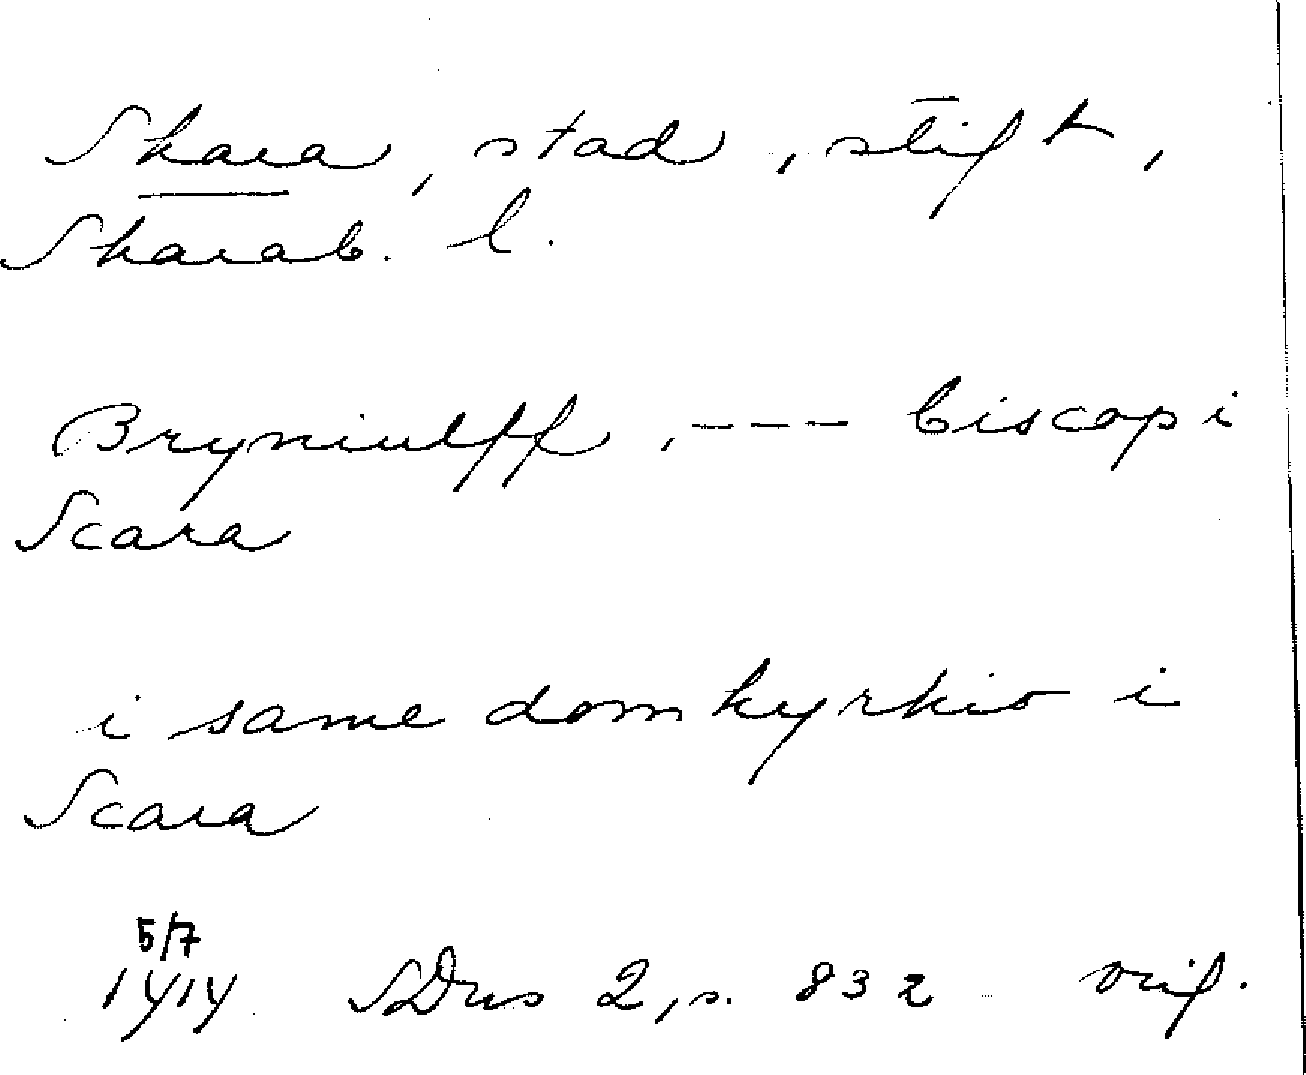 Skara, stad, stift,
Skarab. l.
Bryniulff, --- biscop i
Scara
i same domkyrkio i
Scara
5/7
1414 SDns 2, s. 832 orig.